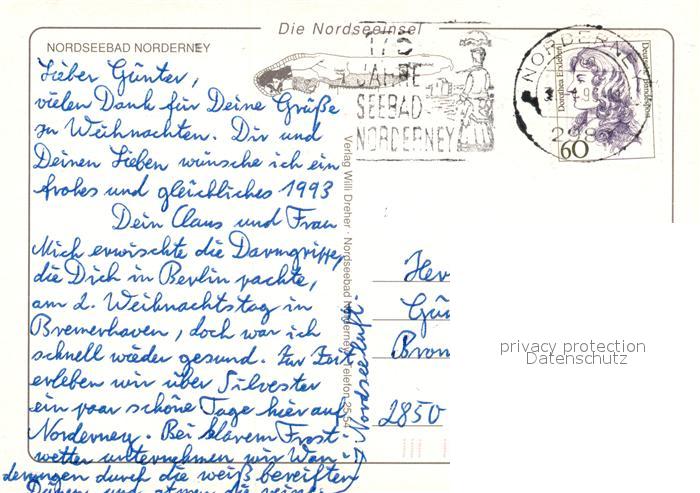 Die Nordseeinsel
NORDSEEBAD NORDERNEY
175
JAHRE
SEEBAD
NORDERNEY
NORDERNEY
2982
Dorothea Erxleben
Deutsche Bundespost
60
Lieber Günter,
vielen Dank für Deine Grüße
zu Weihnachten. Dir und
Deinen Lieben wünsche ich ein
frohes und glückliches 1993
Dein Claus und Frau
Mich erwischte die Darmgrippe,
die Dich in Berlin packte,
am 2. Weihnachtstag in
Bremerhaven, doch war ich
schnell wieder gesund. Zur Zeit
erleben wir über Silvester
ein paar schöne Tage hier auf
Norderney. Bei klarem Frost-
wetter unternehmen wir Wan-
derungen durch die weiß bereiften
Dünen und atmen die reine
Nordseeluft.
Verlag Willi Dreher · Nordseebad Norderney · Telefon
Her
Gü
Brem
2850
privacy protection
Datenschutz